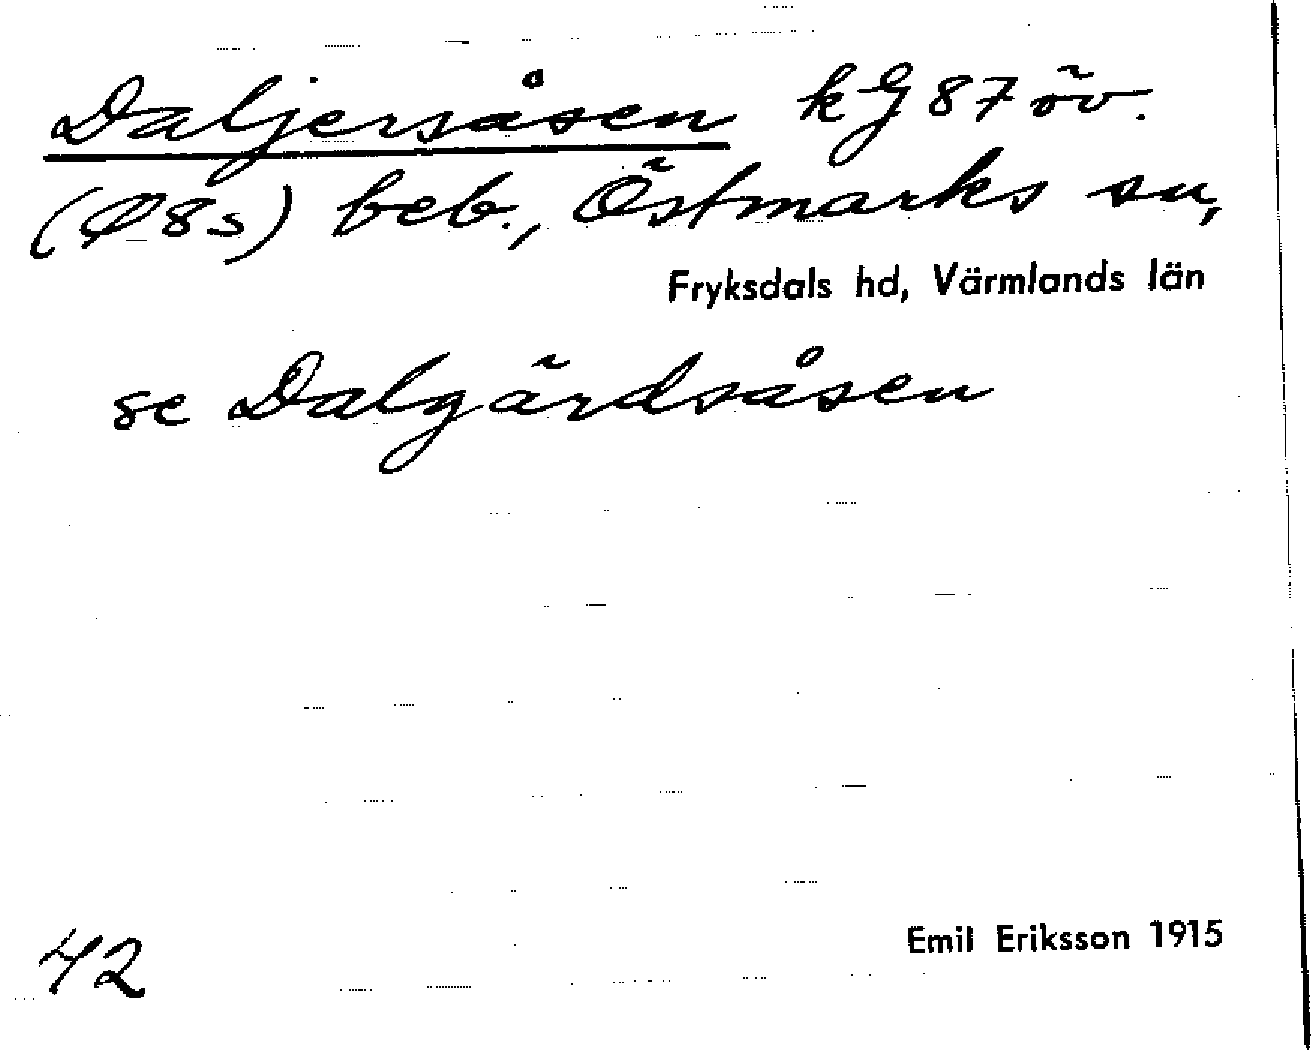 Daljersåsen kG 87 öv.
(Ø8s) beb., Östmarks sn,
Fryksdals hd, Värmlands län
se Dalgärdsåsen
42
Emil Eriksson 1915